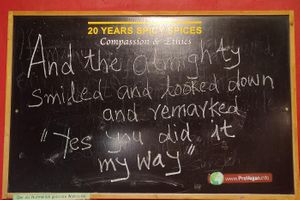 20 YEARS SPICY SPICES
Compassion & Ethics
And the almighty
smiled and looked down
and remarked
"Yes you did it
my way"
www.ProVegan.info